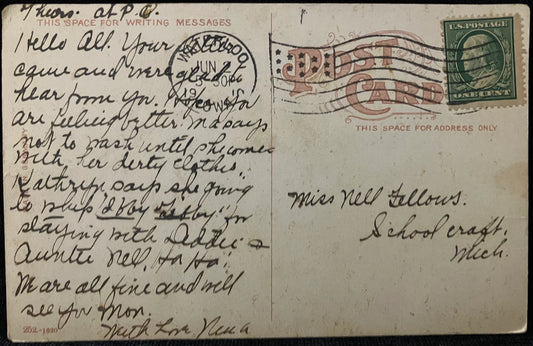 Thurs. at P.O.
THIS SPACE FOR WRITING MESSAGES
Hello All. Your letter
came and were glad to
hear from you. Hope you
are feeling better. Ma says
not to wash until she comes
with her derty clothes.
Kathryn says she going
to whip "Abby Tabby" for
staying with Addie &
Auntie Nell, Ha Ha.
We are all fine and will
see you Mon.
With Love Nina
252-1920
WATERLOO
JUN
IOWA
POST
CARD
THIS SPACE FOR ADDRESS ONLY
U.S. POSTAGE
ONE CENT
Miss Nell Fellows.
Schoolcraft,
Mich.